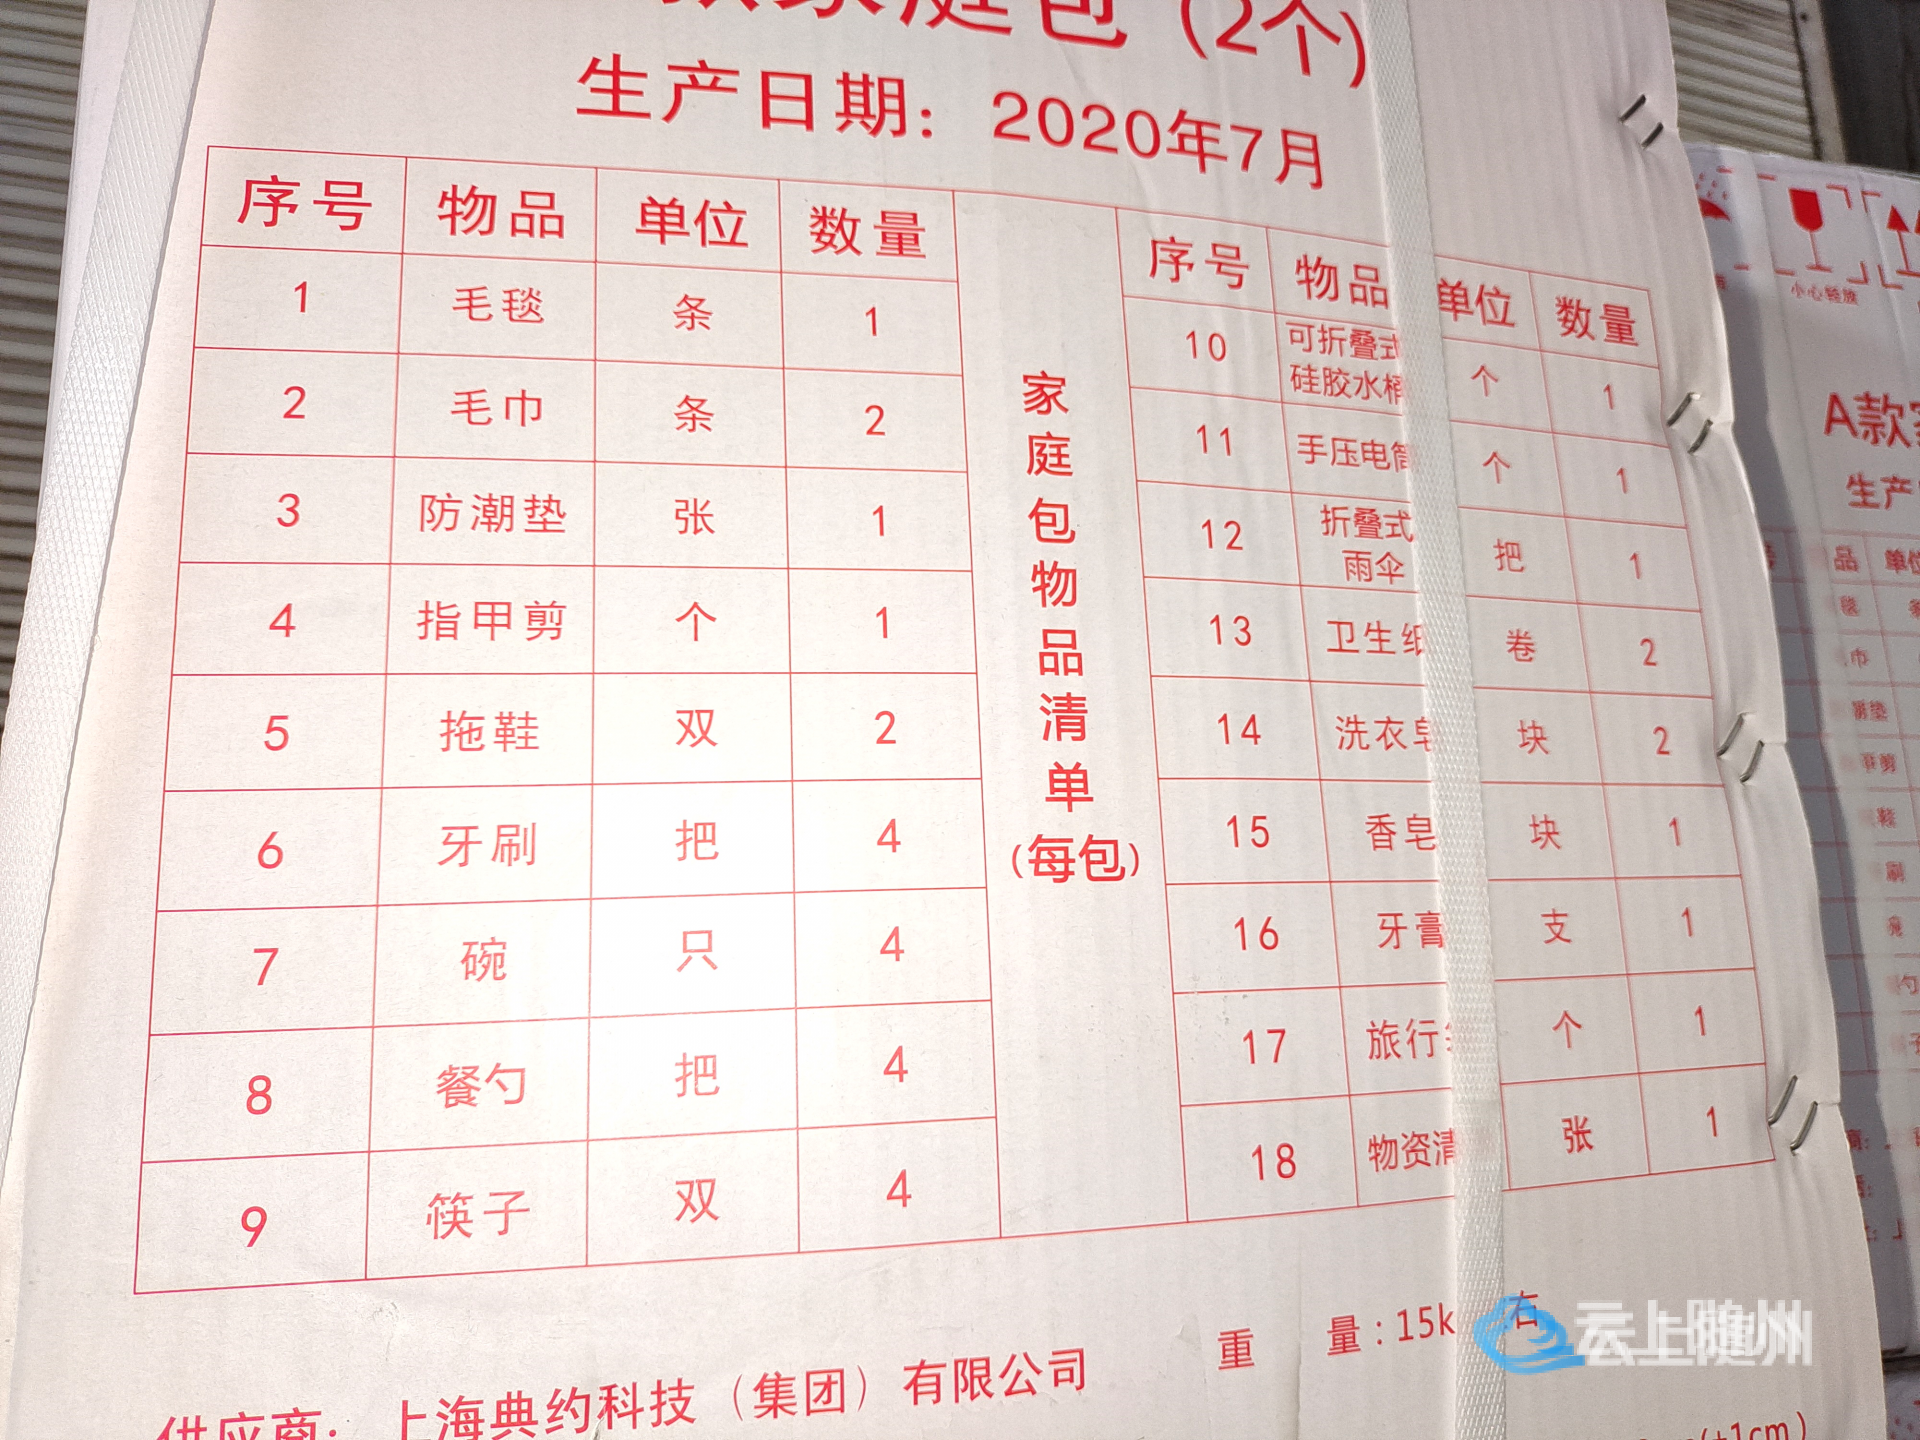 家庭包(2个)
生产日期：2020年7月
序号 物品 单位 数量
1 毛毯 条 1
2 毛巾 条 2
3 防潮垫 张 1
4 指甲剪 个 1
5 拖鞋 双 2
6 牙刷 把 4
7 碗 只 4
8 餐勺 把 4
9 筷子 双 4
家庭包物品清单
(每包)
序号 物品 单位 数量
10 可折叠式硅胶水桶 个 1
11 手压电筒 个 1
12 折叠式雨伞 把 1
13 卫生纸 卷 2
14 洗衣皂 块 2
15 香皂 块 1
16 牙膏 支 1
17 旅行 个 1
18 物资清 张 1
重量：15k 右
供应商：上海典约科技（集团）有限公司
(±1cm)
云上随州
小心轻放
A款
生产
品 单位